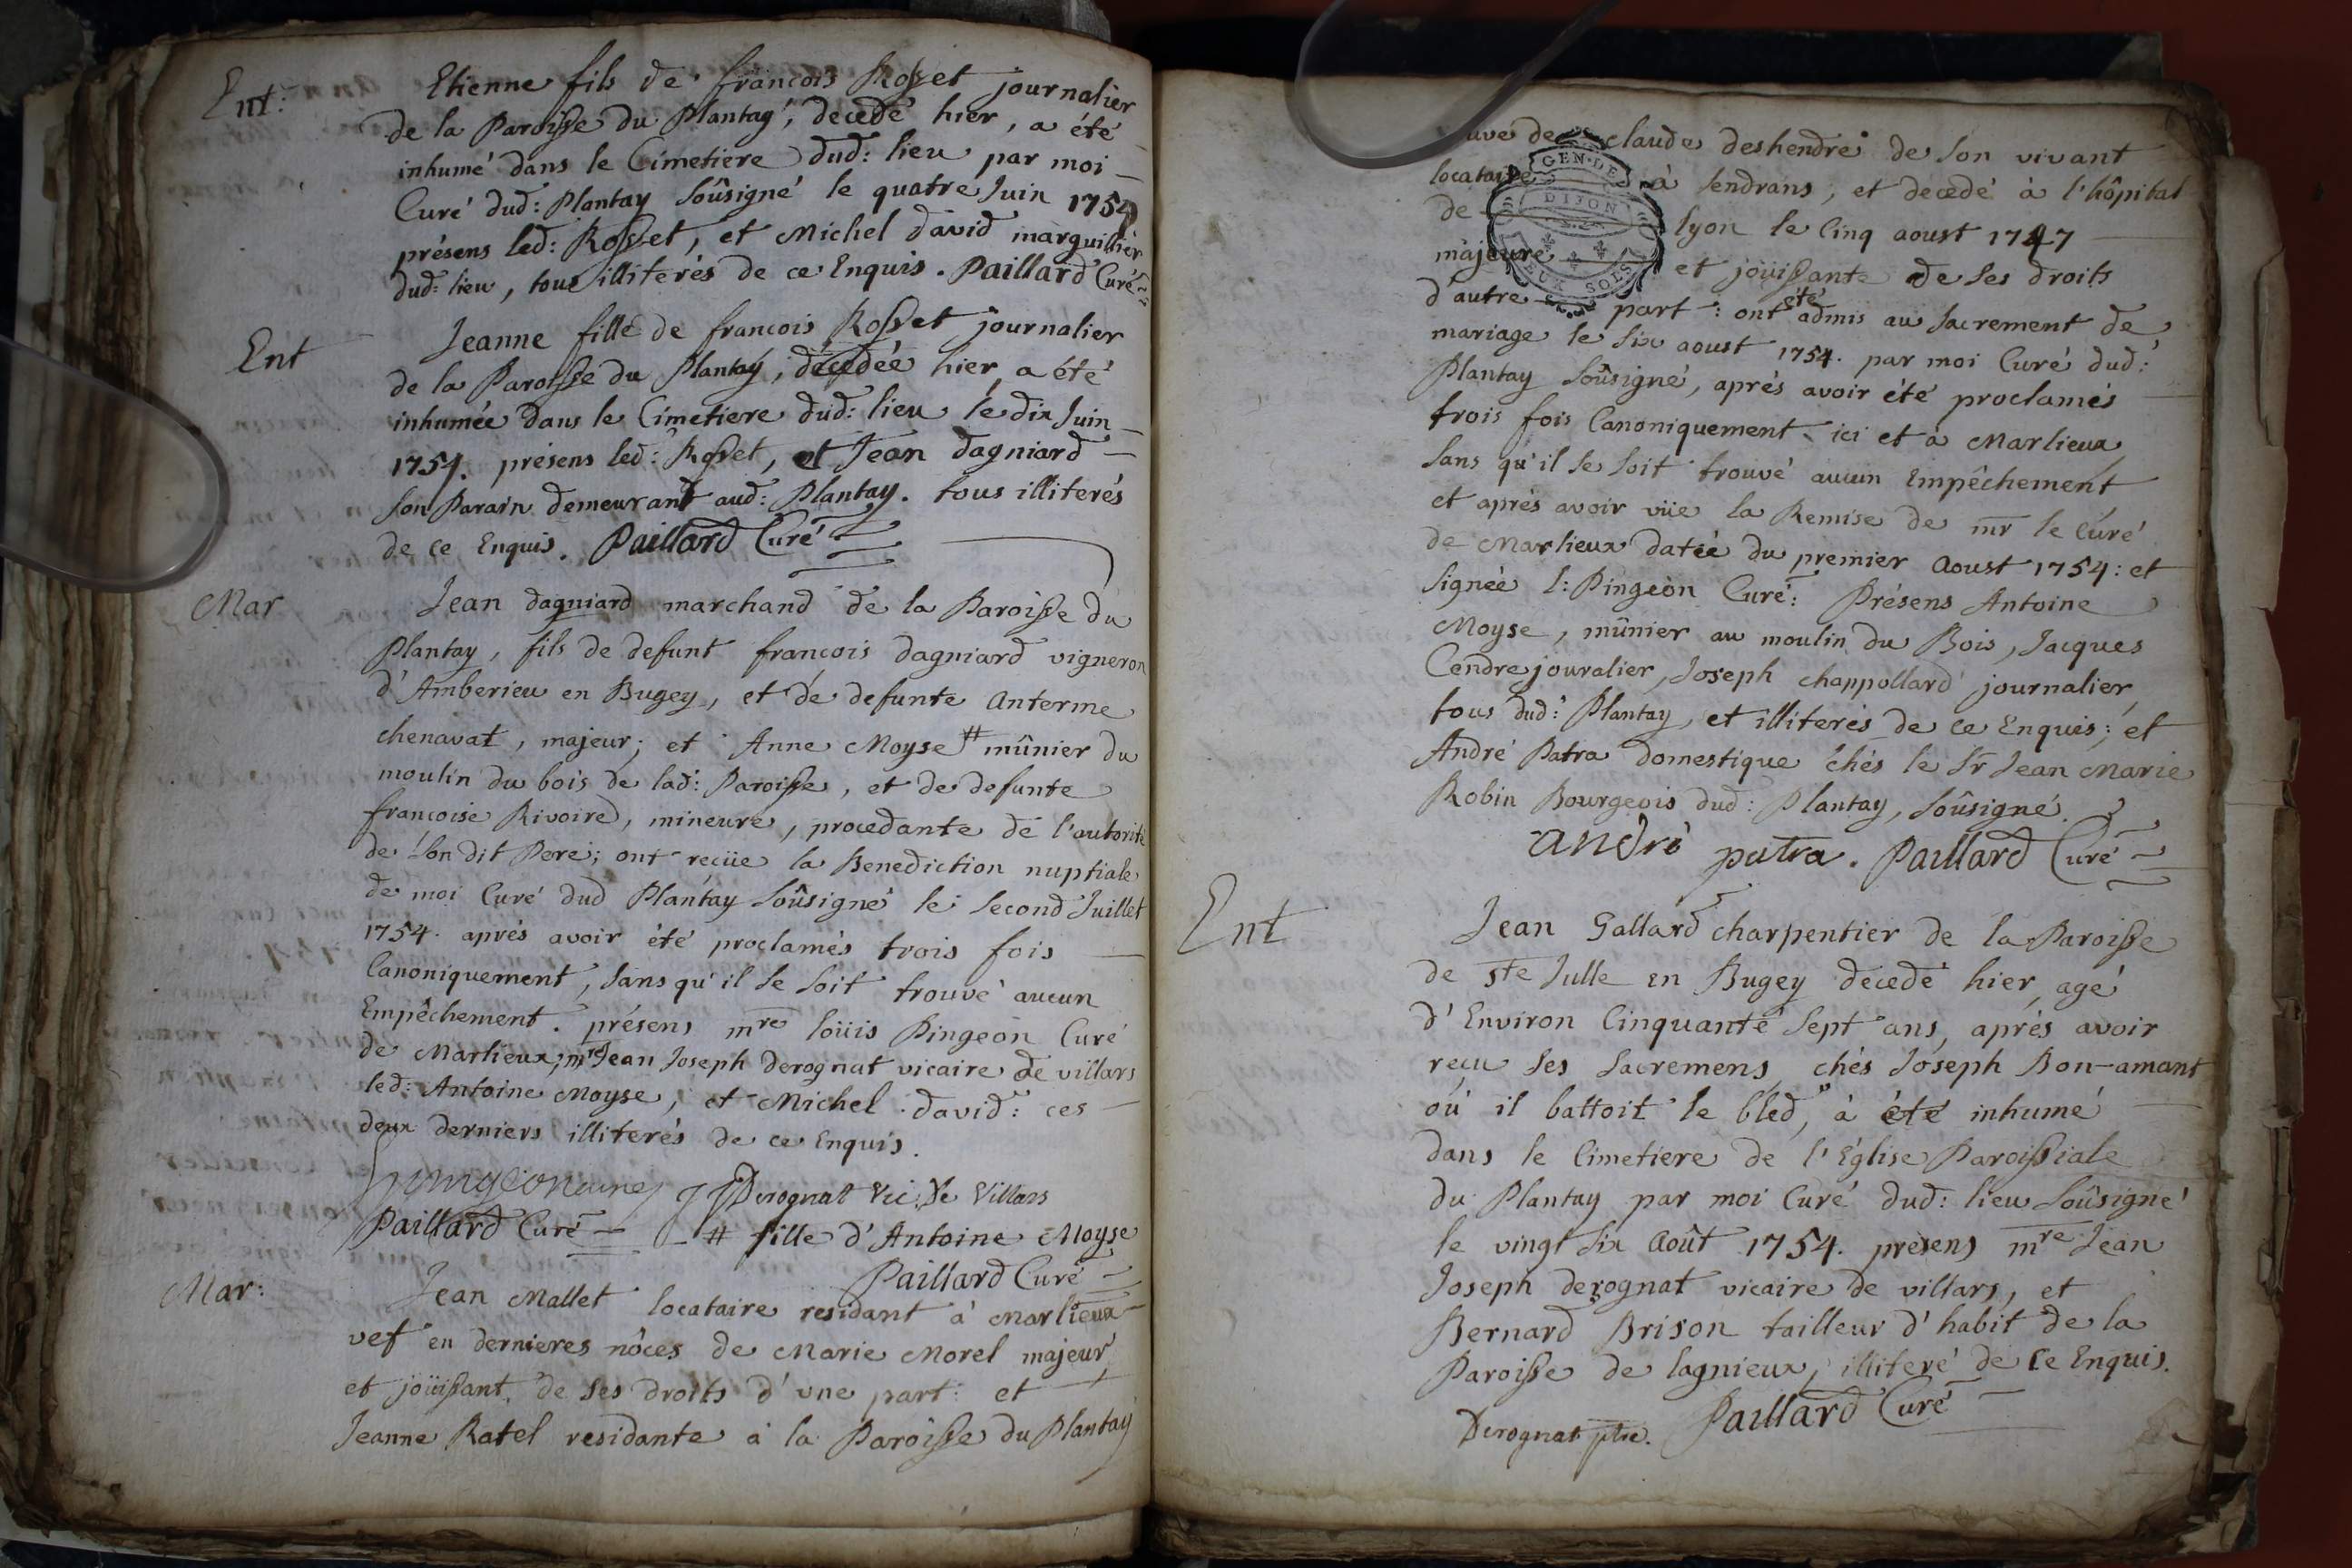 Ent: Etienne fils de francois Rosset journalier
de la Paroisse du Plantay, decedé hier, a été
inhumé dans le Cimetiere dud: lieu par moi
Curé dud: Plantay soûsigné le quatre Juin 1754
présens led: Rosset, et Michel david marguillier
dud: lieu, tous illiterés de ce Enquis. Paillard Curé
Ent Jeanne fille de francois Rosset journalier
de la Paroisse du Plantay, décedée hier, a été
inhumée dans le Cimetiere dud: lieu le dix Juin
1754. présens led: Rosset, et Jean dagniard
son Parain demeurant aud: Plantay. tous illiterés
de ce Enquis. Paillard Curé
Mar Jean dagniard marchand de la Paroisse du
Plantay, fils de defunt francois dagniard vigneron
d'Amberieu en Bugey, et de defunte Anterme
chenavat, majeur; et Anne Moyse # mûnier du
moulin du bois de lad: Paroisse, et de defunte
francoise Rivoire, mineure, procedante de l'autorité
de son dit Pere; ont recüe la Benediction nuptiale
de moi Curé dud Plantay soûsigné le second Juillet
1754. aprés avoir été proclamés trois fois
Canoniquement, sans qu'il se soit trouvé aucun
Empêchement. présens mre loüis Pingeon Curé
de Marlieux, mre Jean Joseph derognat vicaire de villars
led: Antoine Moyse, et Michel david: ces
deux derniers illiterés de ce Enquis.
JJ Derognat Vic: de Villars
Paillard Curé # fille d'Antoine Moyse
Paillard Curé
Mar: Jean Mallet locataire residant à Marlieux
vef en dernieres nôces de Marie Morel majeur
et joüissant de ses droits d'une part: et
Jeanne Ratel residante à la Paroisse du Plantay
GEN. DE
DIJON
DEUX SOLS
de claude deshendre de son vivant
locataire à sendrans, et decedé à l'hôpital
de lyon le Cinq aoust 1747
majeure et joüissante de ses droits
d'autre part: ont été admis au sacrement de
mariage le six aoust 1754. par moi Curé dud:
Plantay soûsigné, aprés avoir été proclamés
trois fois Canoniquement ici et à Marlieux
sans qu'il se soit trouvé aucun Empêchement
et aprés avoir vüe la Remise de mr le Curé
de Marlieux datée du premier Aoust 1754: et
signée l: Pingeon Curé: Présens Antoine
Moyse, mûnier au moulin du Bois, Jacques
Cendre jouralier, Joseph chappollard journalier,
tous dud: Plantay et illiterés de ce Enquis; et
André Patra domestique chés le Sr Jean Marie
Robin Bourgeois dud: Plantay, soûsigné.
andré patra. Paillard Curé
Ent Jean Gallard charpentier de la Paroisse
de Ste Julle en Bugey decedé hier, agé
d'Environ Cinquante sept ans, aprés avoir
reçu ses sacremens, chés Joseph Bon-amant
où il battoit le bled, à été inhumé
dans le Cimetiere de l'Église Paroissiale
du Plantay par moi Curé dud: lieu soûsigné
le vingt six Août 1754. présens mre Jean
Joseph derognat vicaire de villars, et
Bernard Brison tailleur d'habit de la
Paroisse de lagnieux, illiteré de ce Enquis.
Derognat ptre. Paillard Curé